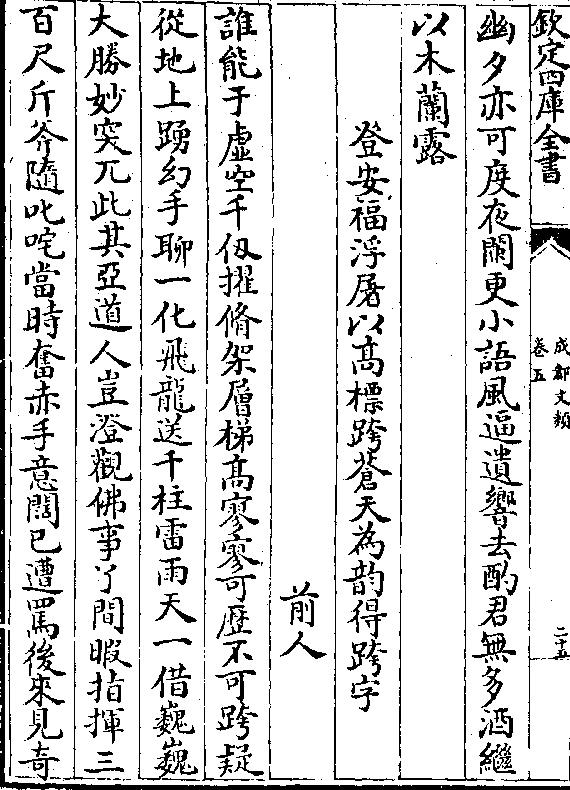 欽定四庫全書
成都文類
卷五
二十五
幽夕亦可度夜闌更小語風逼遺響去酌君無多酒繼
以木蘭露
登安福浮屠以髙標跨蒼天為韵得跨字
前人
誰能于虛空千仭擢脩架層梯髙寥寥可歴不可跨疑
從地上踴幻手聊一化飛龍送千柱雷雨天一借巍巍
大勝妙突兀此其亞道人豈澄觀佛事了間暇指揮三
百尺斤斧隨叱咤當時奮赤手意闊已遭罵後來見奇